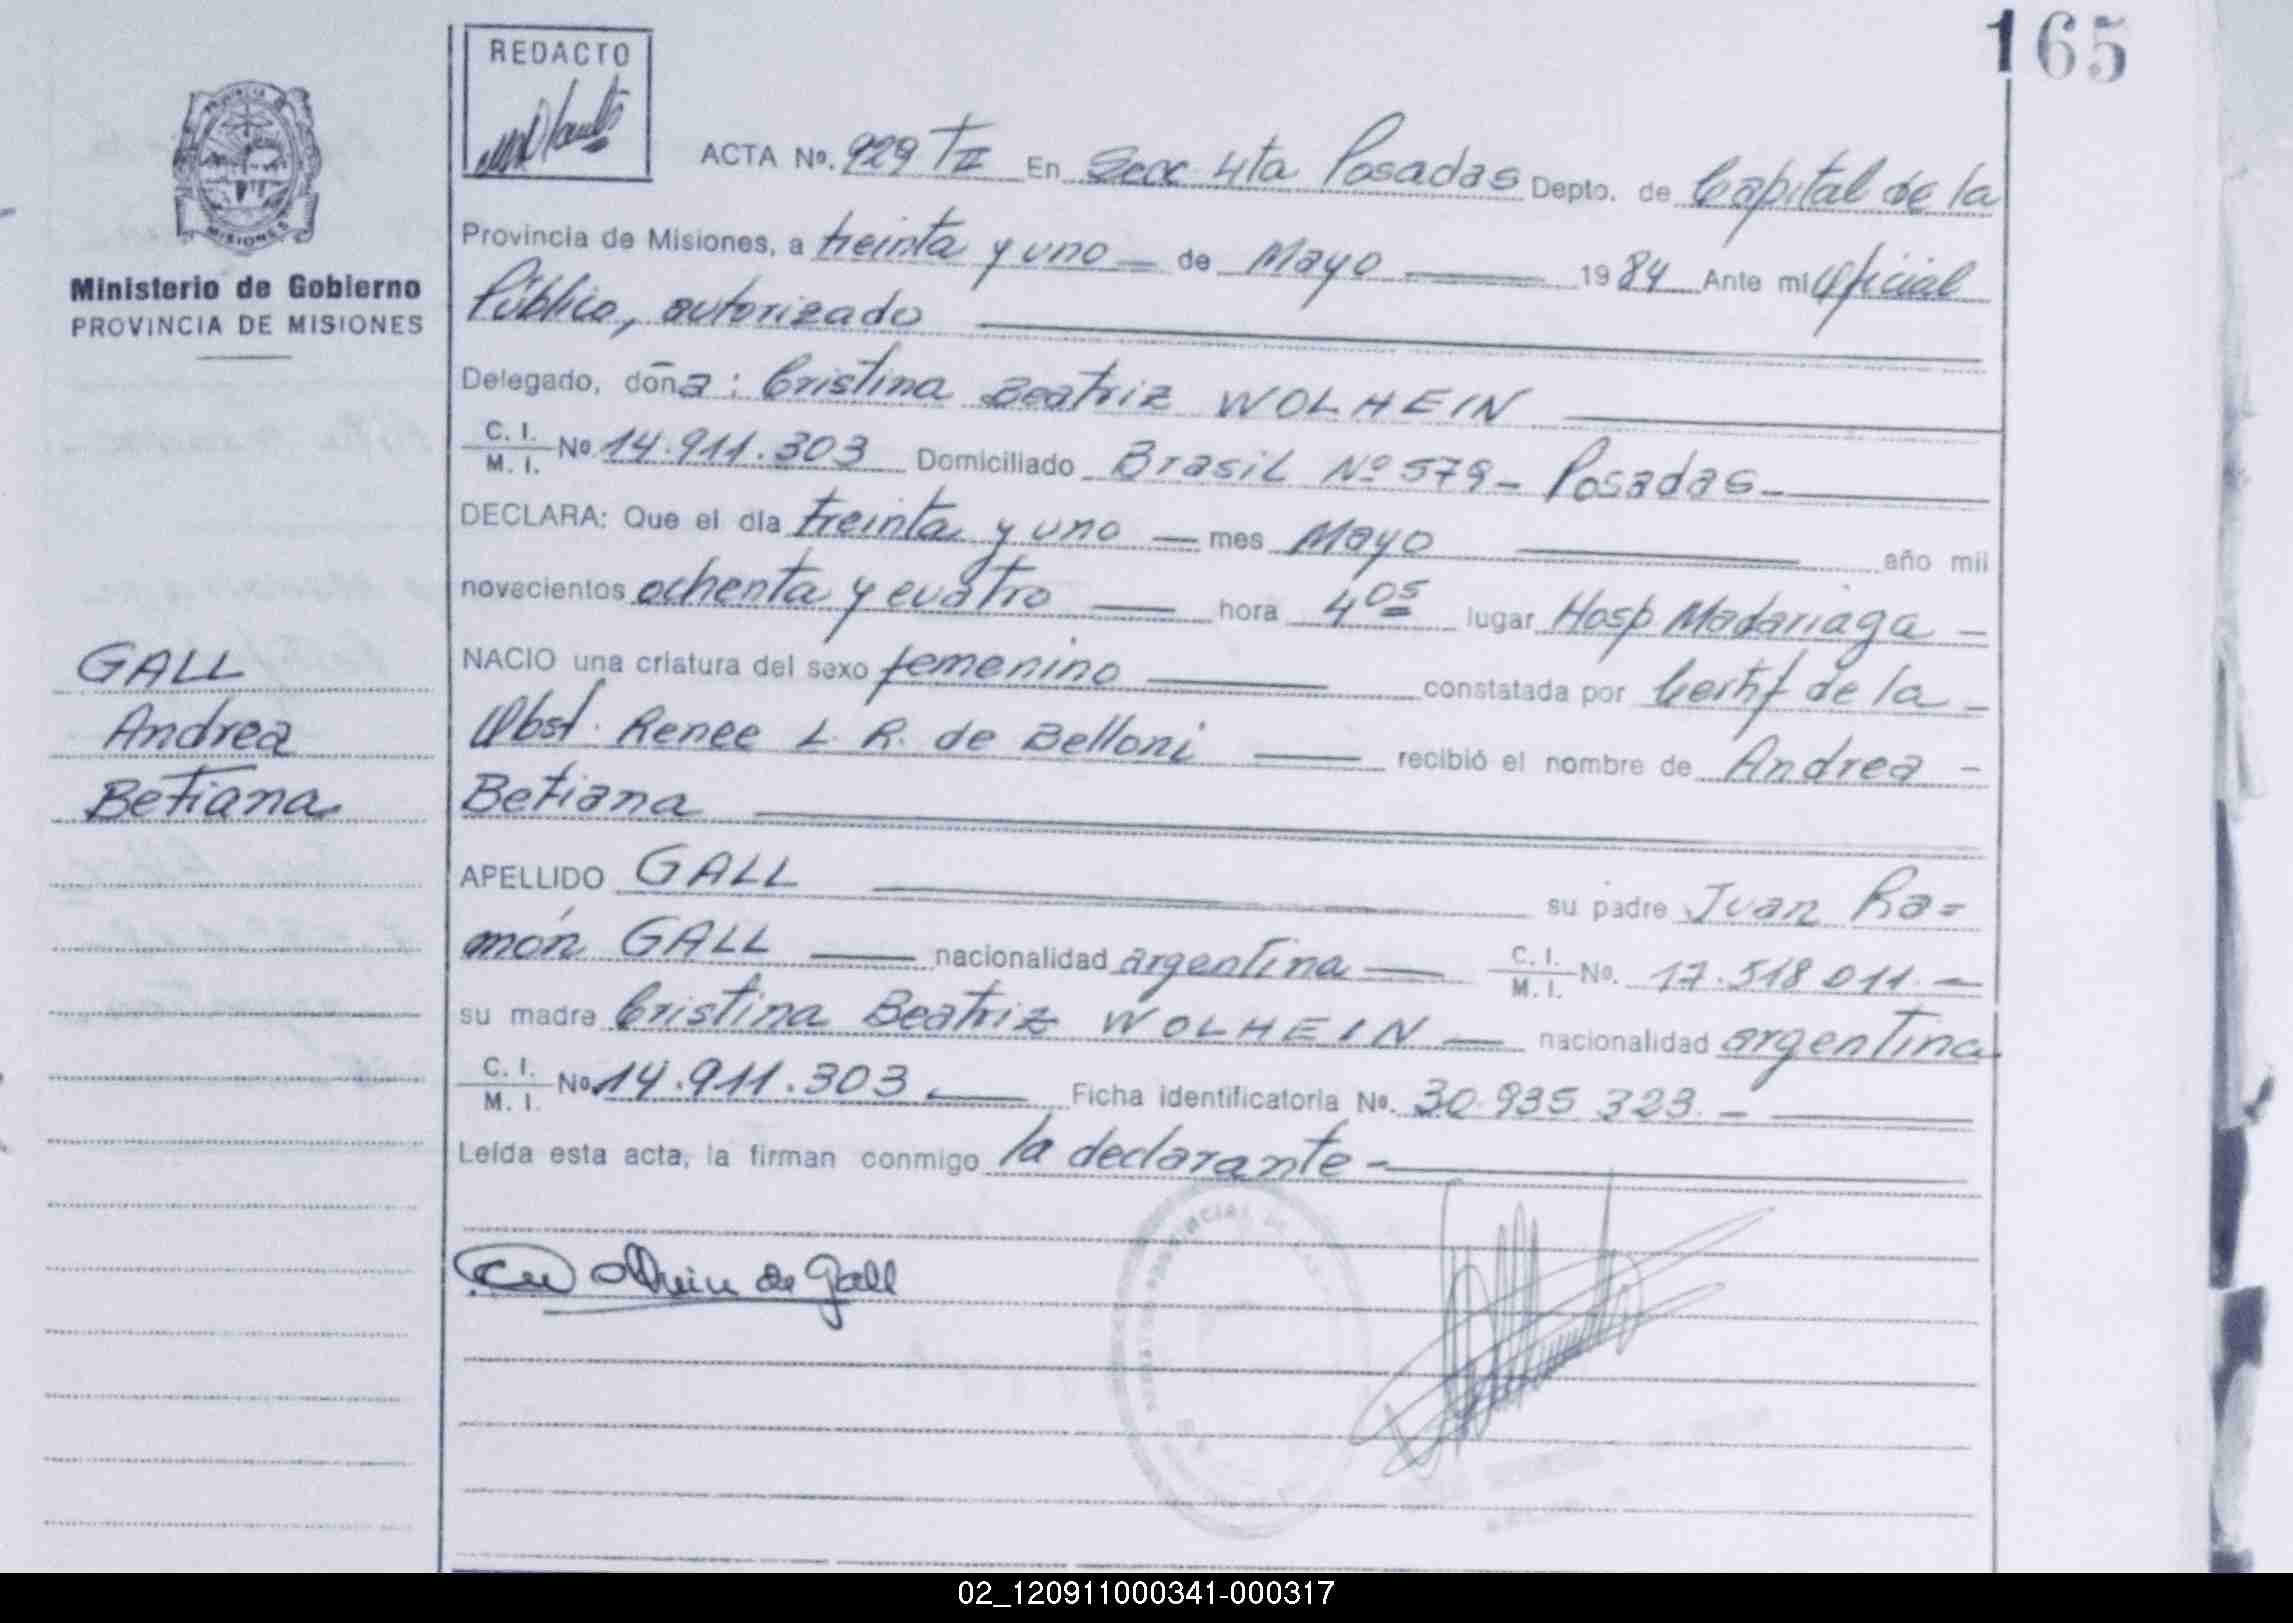 165
REDACTO
PROVINCIA DE
MISIONES
Ministerio de Gobierno
PROVINCIA DE MISIONES
ACTA Nº. 929 TII En Secc 4ta Posadas Depto. de Capital de la
Provincia de Misiones, a treinta y uno — de Mayo — 1984 Ante mi Oficial
Público, autorizado —
Delegado, doña: Cristina Beatriz WOLHEIN —
C. I.
M. I. Nº 14.911.303 Domiciliado Brasil Nº 579 - Posadas -
DECLARA: Que el día treinta y uno — mes Mayo — año mil
novecientos ochenta y cuatro — hora 4 05 lugar Hosp Madariaga —
NACIO una criatura del sexo femenino — constatada por Certif de la —
Obst. Renee L. R. de Belloni — recibió el nombre de Andrea -
Betiana —
APELLIDO GALL — su padre Juan Ra=
món GALL — nacionalidad argentina — C. I.
M. I. Nº. 17.518 011. —
su madre Cristina Beatriz WOLHEIN — nacionalidad argentina
C. I.
M. I. Nº 14.911.303 — Ficha identificatoria Nº. 30.935 323. —
Leída esta acta, la firman conmigo la declarante -
GALL
Andrea
Betiana
de Gall
02_120911000341-000317